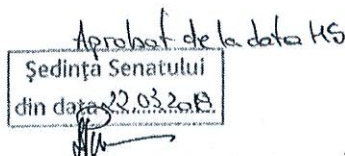 Aprobat de la data HS
Ședința Senatului
din data 22.03.2018